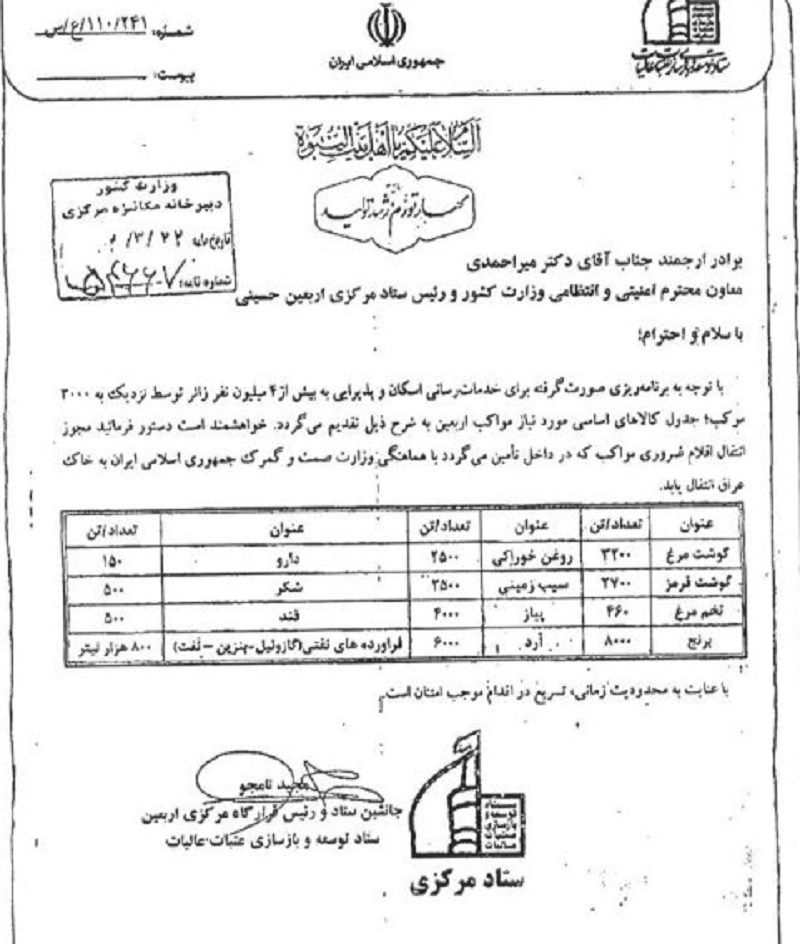 شماره: ۱۱۰/۲۴۱/ع/س
پیوست:
جمهوری اسلامی ایران
ستاد توسعه و بازسازی عتبات عالیات
السلام علیکم یا اهل بیت النبوة
مهار تورم رشد تولید
وزارت کشور
دبیرخانه مکانیزه مرکزی
تاریخ نامه
شماره نامه:
برادر ارجمند جناب آقای دکتر میراحمدی
معاون محترم امنیتی و انتظامی وزارت کشور و رئیس ستاد مرکزی اربعین حسینی
با سلام و احترام؛
با توجه به برنامه‌ریزی صورت گرفته برای خدمات‌رسانی اسکان و پذیرایی به بیش از ۴ میلیون نفر زائر توسط نزدیک به ۳۰۰۰
موکب؛ جدول کالاهای اساسی مورد نیاز مواکب اربعین به شرح ذیل تقدیم می‌گردد. خواهشمند است دستور فرمائید مجوز
انتقال اقلام ضروری مواکب که در داخل تأمین می‌گردد با هماهنگی وزارت صمت و گمرک جمهوری اسلامی ایران به خاک
عراق انتقال یابد.
عنوان تعداد/تن عنوان تعداد/تن عنوان تعداد/تن
گوشت مرغ ۳۲۰۰ روغن خوراکی ۲۵۰۰ دارو ۱۵۰
گوشت قرمز ۲۷۰۰ سیب زمینی ۳۵۰۰ شکر ۵۰۰
تخم مرغ ۴۶۰ پیاز ۴۰۰۰ قند ۵۰۰
برنج ۸۰۰۰ آرد ۶۰۰۰ فراورده های نفتی(گازوئیل-بنزین-نفت) ۸۰۰ هزار لیتر
با عنایت به محدودیت زمانی، تسریع در اقدام موجب امتنان است.
مجید نامجو
جانشین ستاد و رئیس قرارگاه مرکزی اربعین
ستاد توسعه و بازسازی عتبات عالیات
ستاد توسعه و بازسازی عتبات عالیات
ستاد مرکزی